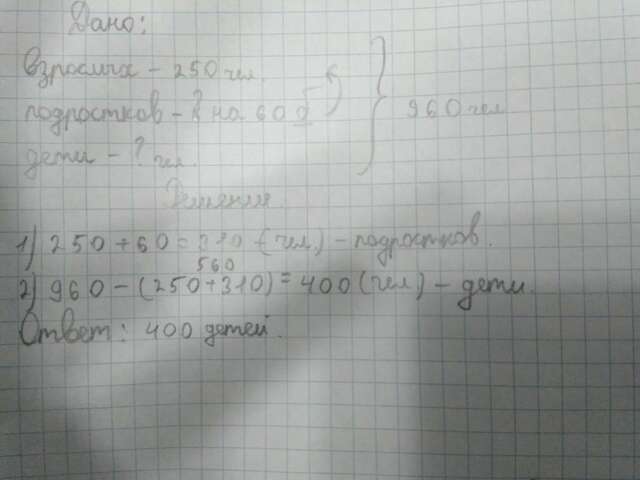 Дано:
Взрослых - 250 чел.
подростков - ? на 60 б
дети - ? чел.
960 чел
Решение.
1) 250 + 60 = 310 (чел.) - подростков.
560
2) 960 - (250+310) = 400 (чел) - дети.
Ответ: 400 детей.